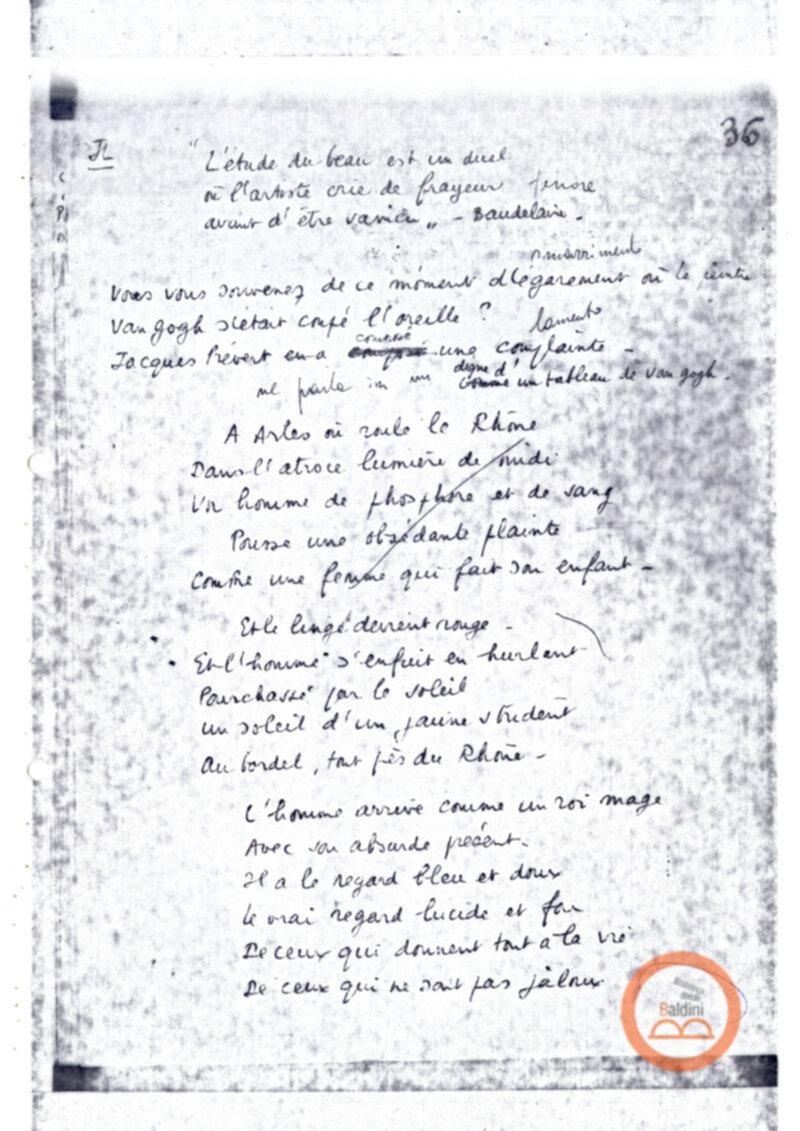 36
II
"L'étude du beau est un duel
où l'artiste crie de frayeur
avant d'être vaincu„ - Baudelaire -
smarriment
Vous vous souvenez de ce moment d'égarement où le peintre
Van gogh s'était coupé l'oreille ?
lamento
Jacques Prévert en a composé une complainte -
digne d'
me parla in un comme un tableau de Van gogh.
A Arles où roule le Rhône
Dans l'atroce lumière de midi
Un homme de phosphore et de sang
Pousse une obsédante plainte
Comme une femme qui fait son enfant -
Et le linge devient rouge -
Et l'homme s'enfuit en hurlant
Pourchassé par le soleil
un soleil d'un jaune strident
Au bordel, tout près du Rhône -
L'homme arrive comme un roi mage
Avec son absurde présent.
Il a le regard bleu et doux
Le vrai regard lucide et fou
De ceux qui donnent tout à la vie
De ceux qui ne sont pas jaloux
Baldini